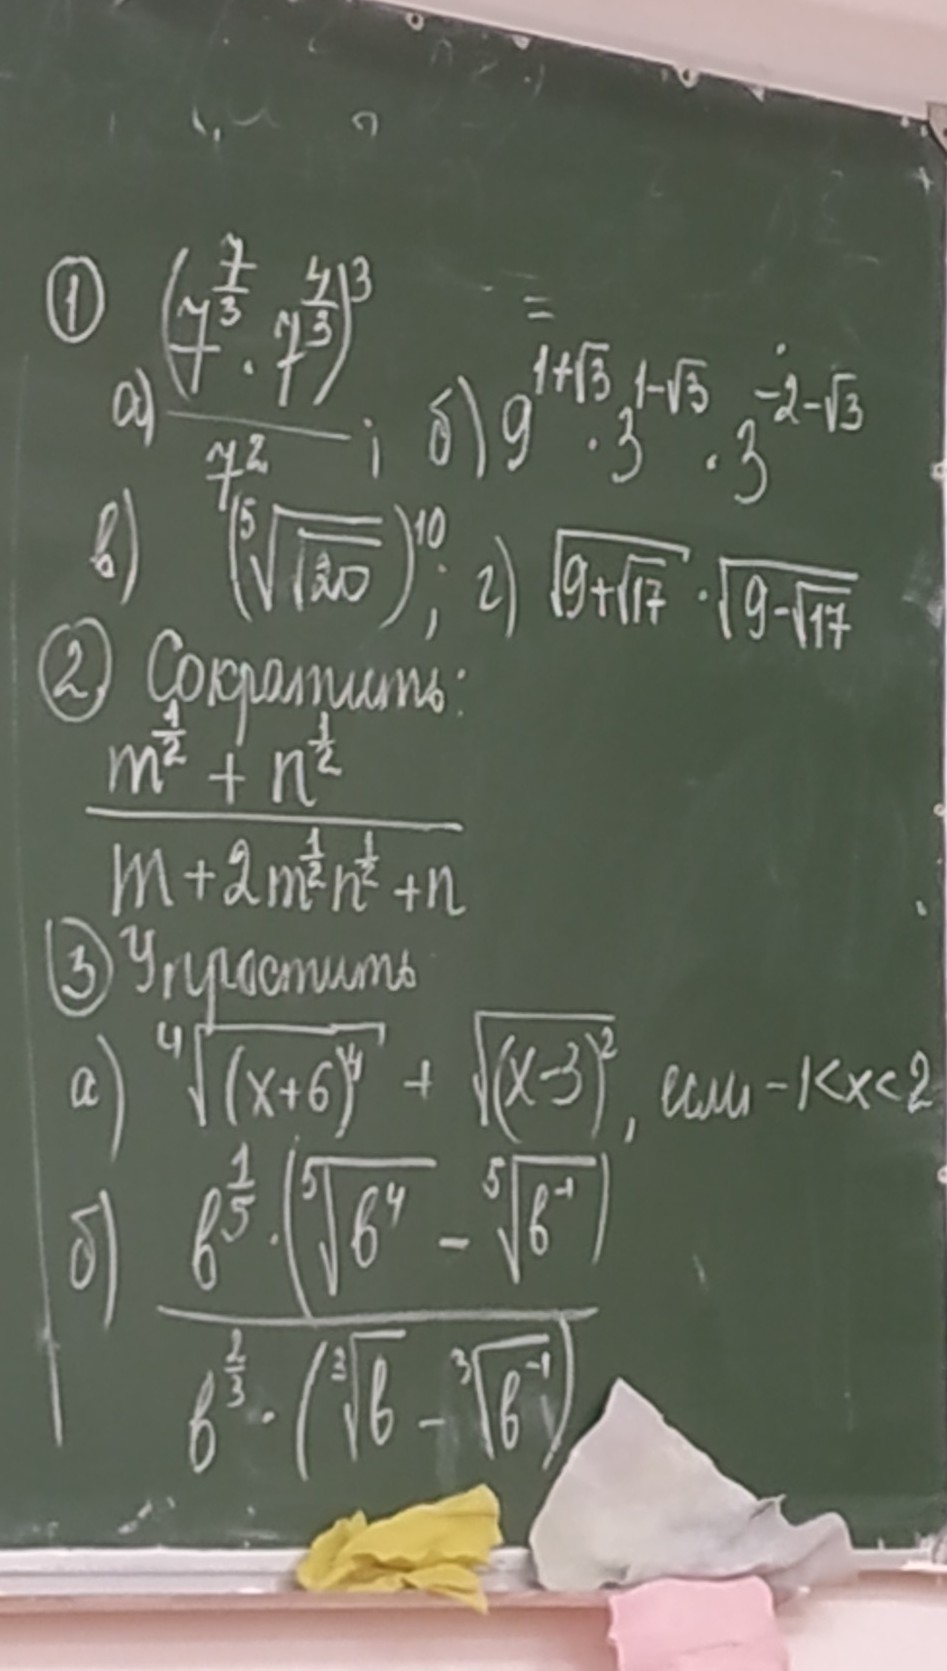 ① а) (7^(7/3) · 7^(4/3))^3 / 7^2 ; б) 9^(1+√3) · 3^(1-√3) · 3^(-2-√3)
=
в) (⁵√(√20))^10 ; г) √(9+√17) · √(9-√17)
② Сократить:
(m^(1/2) + n^(1/2)) / (m + 2m^(1/2)n^(1/2) + n)
③ Упростить
а) ⁴√((x+6)^4) + √((x-3)^2), если -1<x<2
б) b^(1/5) · (⁵√(b^4) - ⁵√(b^(-1))) / b^(2/3) · (³√b - ³√(b^(-1)))